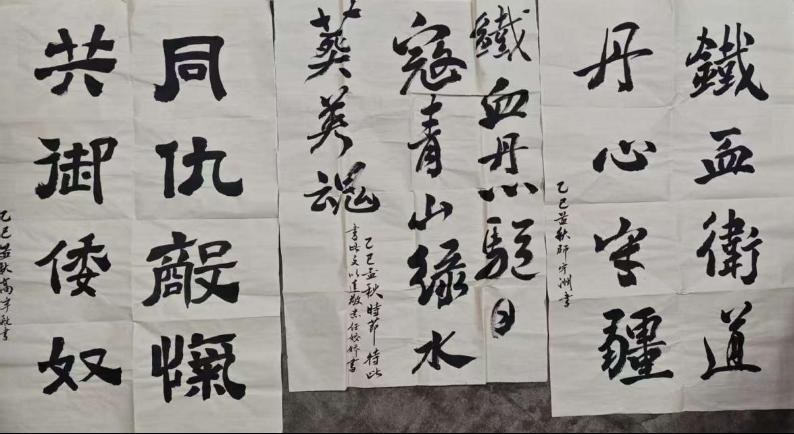 鐵血衛道
丹心守疆
乙巳孟秋師
書
鐵血丹心驅日
寇青山綠水
葬英魂
乙巳孟秋時節特此
書此文以達敬忠任
書
同仇敵愾
共御倭奴
乙巳孟秋高
書